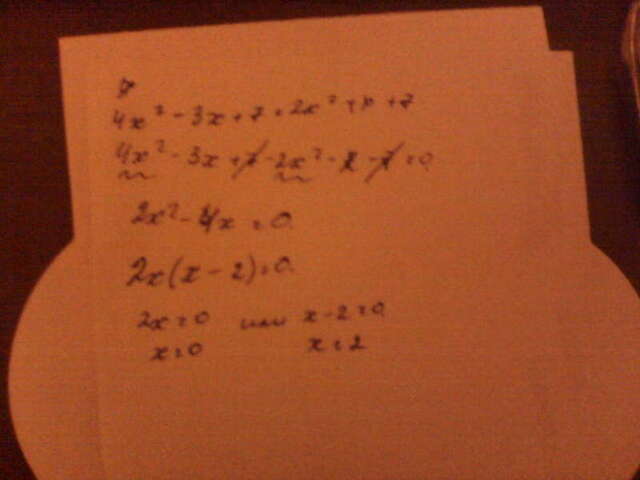 4x² - 3x + 7 = 2x² + x + 7
4x² - 3x + 7 - 2x² - x - 7 = 0
2x² - 4x = 0
2x(x - 2) = 0
2x = 0 или x - 2 = 0
x = 0 x = 2